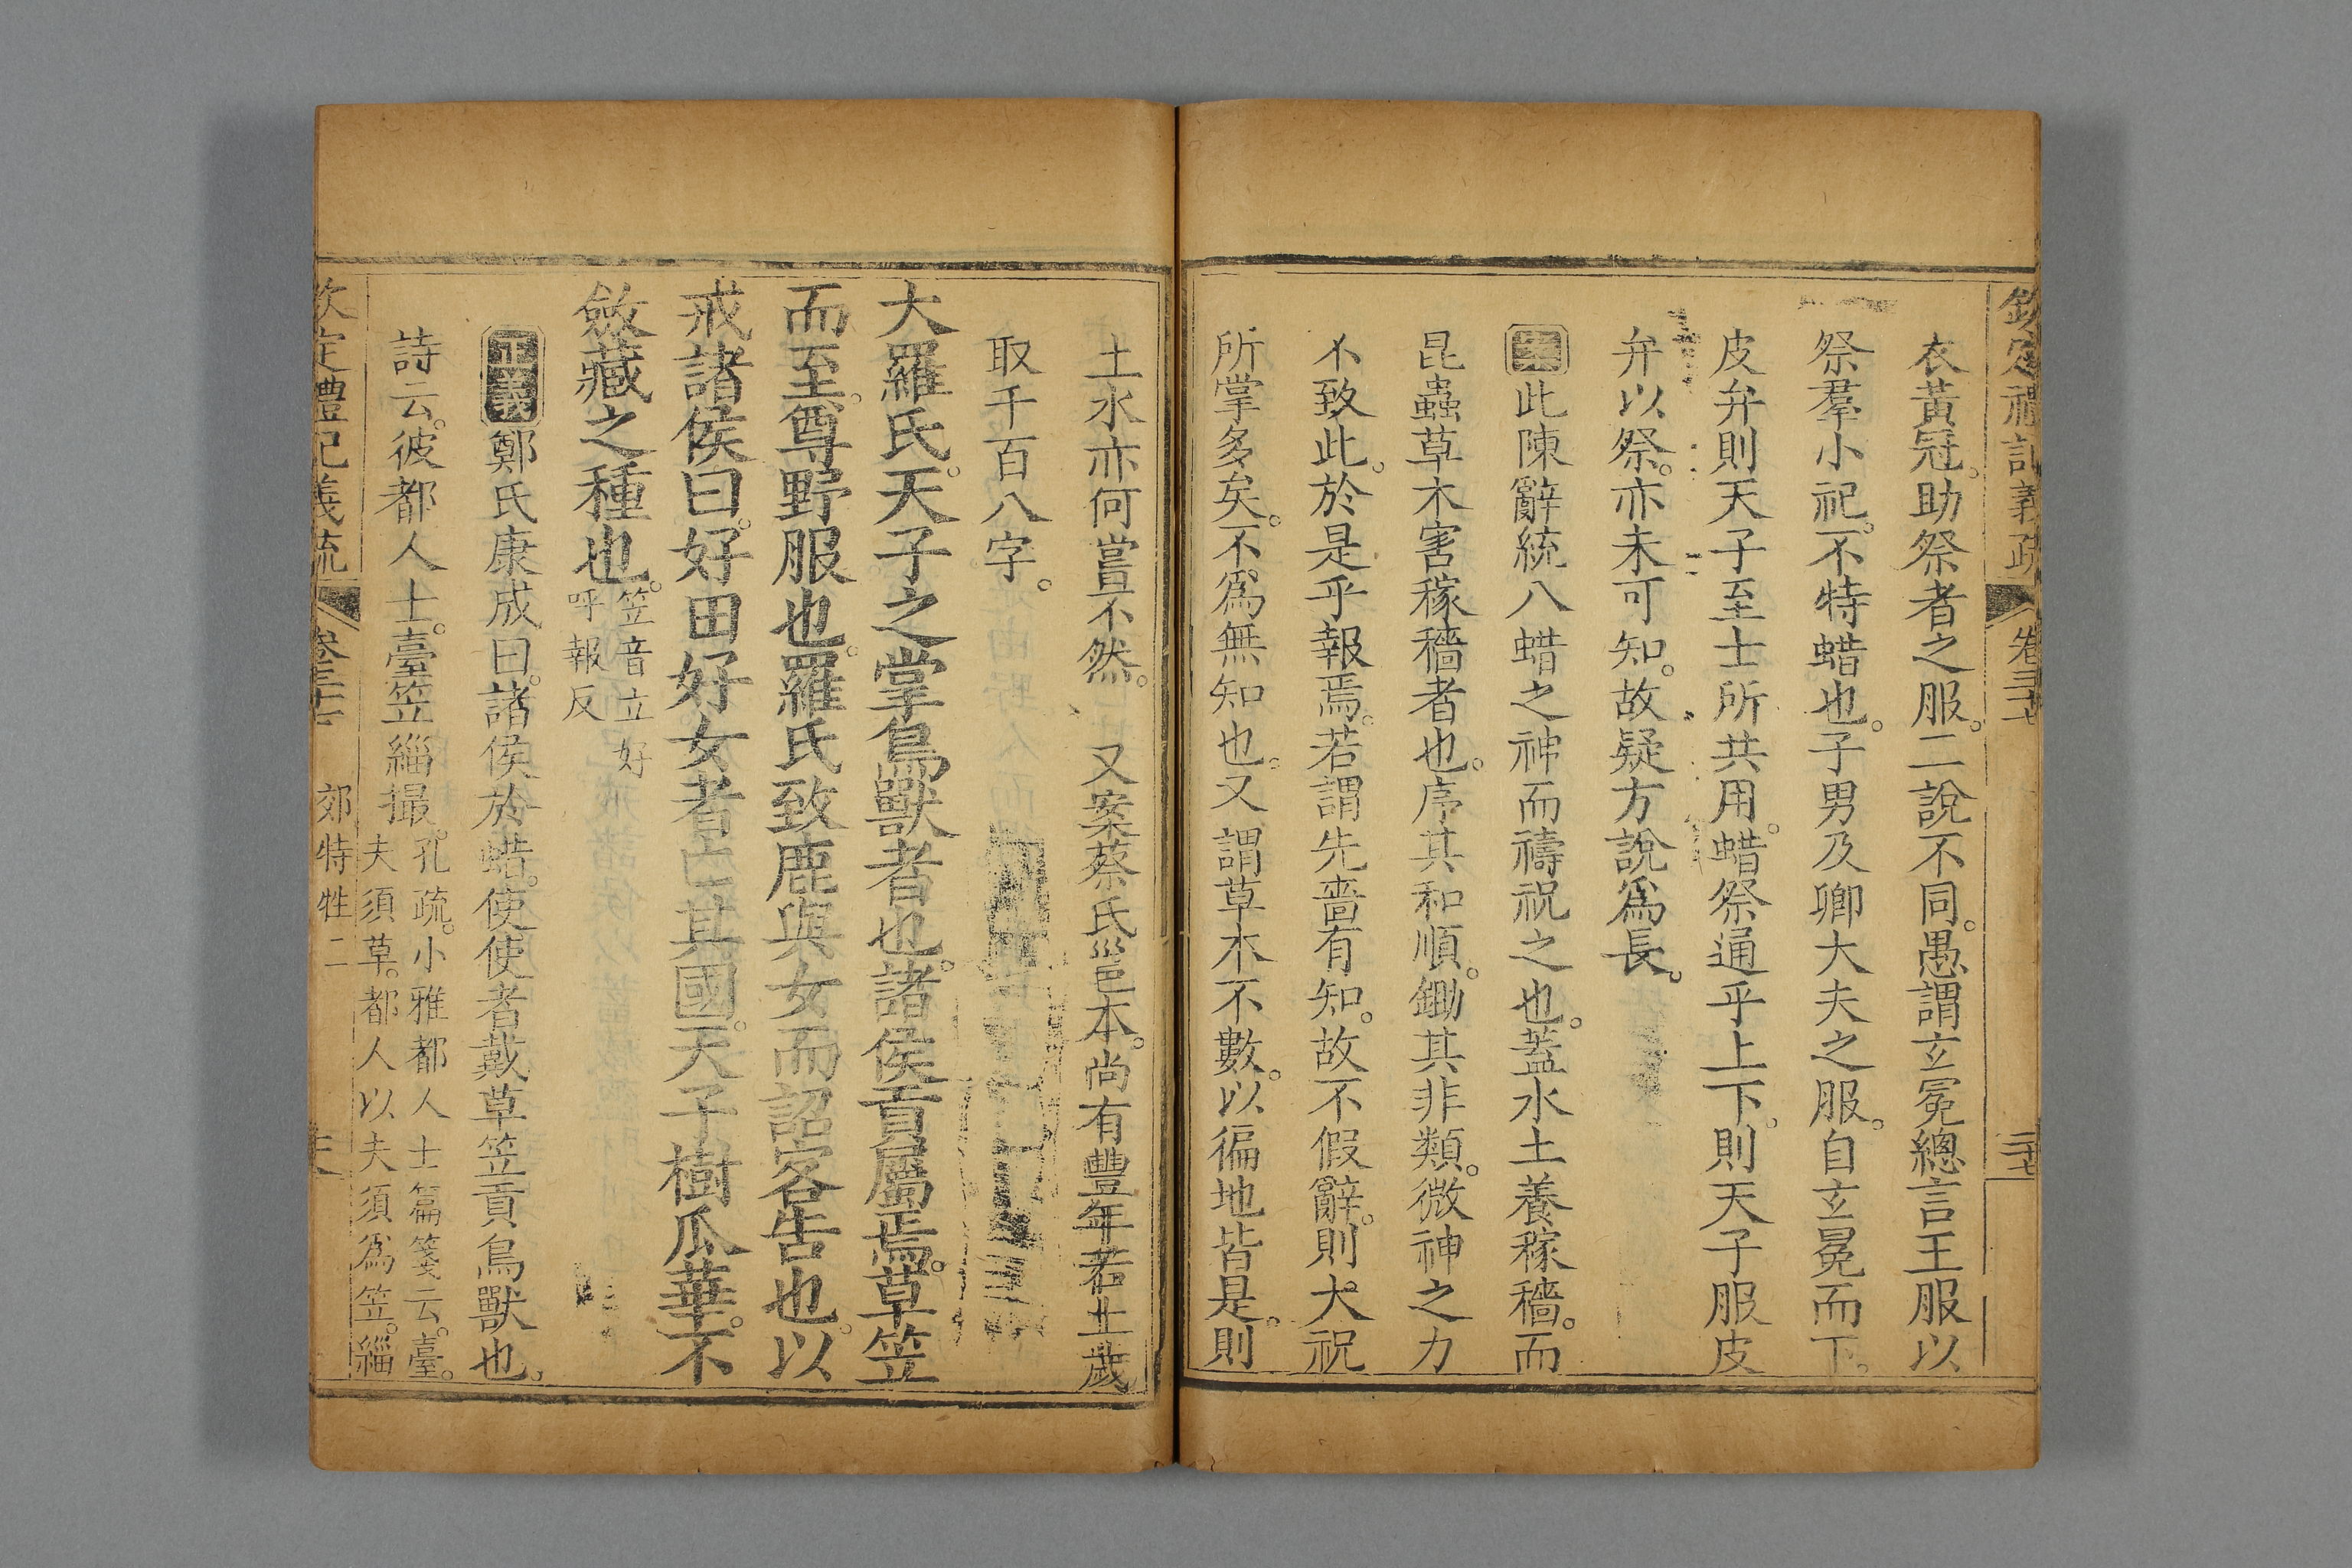 欽定禮記義疏 卷三十七 二十七
衣黃冠。助祭者之服。二說不同。愚謂玄冕總言王服以
祭羣小祀。不特蜡也。子男及卿大夫之服。自玄冕而下。
皮弁則天子至士所共用。蜡祭通乎上下。則天子服皮
弁以祭。亦未可知。故疑方說爲長。
案此陳辭統八蜡之神而禱祝之也。蓋水土養稼穡。而
昆蟲草木害稼穡者也。序其和順。鋤其非類。微神之力
不致此。於是乎報焉。若謂先嗇有知。故不假辭。則大祝
所掌多矣。不爲無知也。又謂草木不數。以徧地皆是。則
土水亦何嘗不然。 又案蔡氏邕本。尚有豐年若土歲
取千百八字。
大羅氏。天子之掌鳥獸者也。諸侯貢屬焉。草笠
而至。尊野服也。羅氏致鹿與女而詔客告也。以
戒諸侯曰。好田好女者亡其國。天子樹瓜華。不
斂藏之種也。笠音立好呼報反
正義鄭氏康成曰。諸侯於蜡。使使者戴草笠貢鳥獸也。
詩云。彼都人士。臺笠緇撮。孔疏。小雅都人士篇箋云。臺。夫須草。都人以夫須爲笠。緇
欽定禮記義疏 卷三十七 郊特牲二